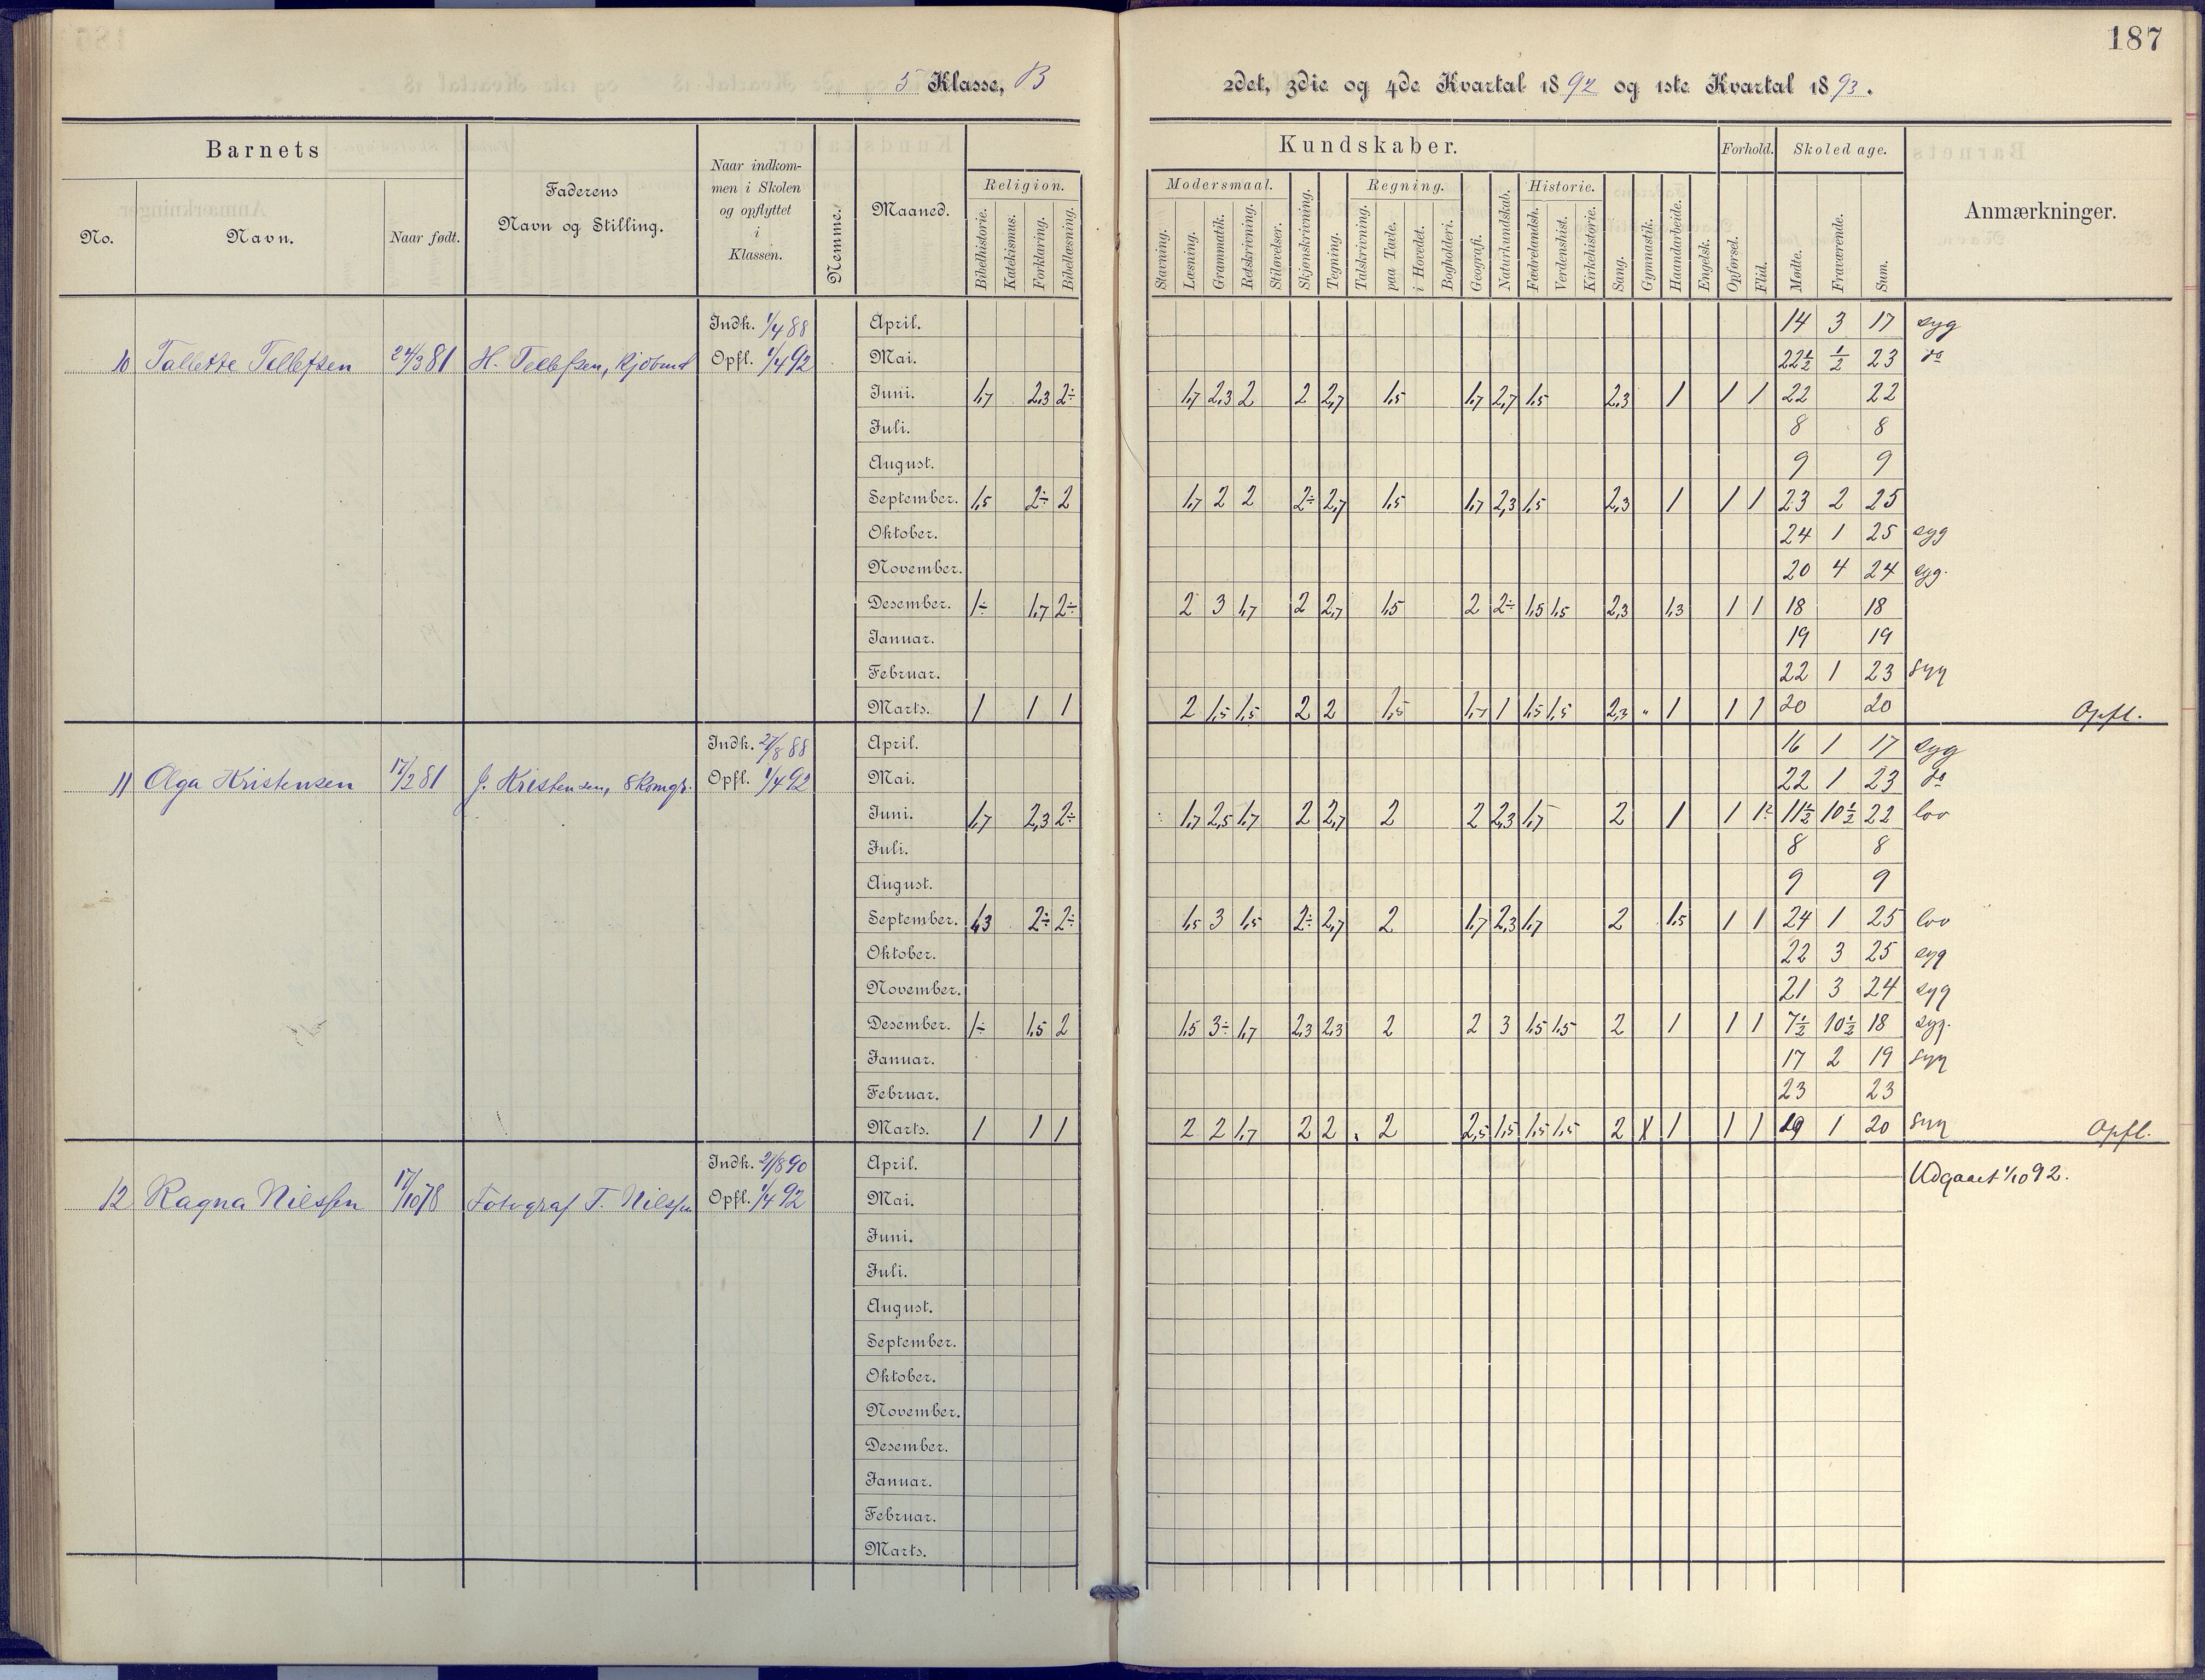 187
5 Klasse, B
2det, 3die og 4de Kvartal 1892 og 1ste Kvartal 1893.
Barnets
No.
Navn.
Naar født.
Faderens
Navn og Stilling.
Naar indkom-
men i Skolen
og opflyttet
i
Klassen.
Nemme.
Maaned.
Kundskaber.
Religion.
Bibelhistorie.
Katekismus.
Forklaring.
Bibellæsning.
Modersmaal.
Stavning.
Læsning.
Grammatik.
Retskrivning.
Stiløvelser.
Skjønskrivning.
Tegning.
Regning.
Talskrivning.
paa Tavle.
i Hovedet.
Bogholderi.
Geografi.
Naturkundskab.
Historie.
Fædrelandsh.
Verdenshist.
Kirkehistorie.
Sang.
Gymnastik.
Haandarbeide.
Engelsk.
Forhold.
Opførsel.
Flid.
Skoledage.
Mødte.
Fraværende.
Sum.
Anmærkninger.
Indk. 1/4 88 April. 14 3 17 syg
10 Tallette Tellefsen 24/3 81 H. Tellefsen, Kjøbmd Opfl. 1/4 92 Mai. 22½ ½ 23 do
Juni. 1,7 2,3 2÷ 1,7 2,3 2 2 2,7 1,5 1,7 2,7 1,5 2,3 1 1 1 22 22
Juli. 8 8
August. 9 9
September. 1,5 2÷ 2 1,7 2 2 2÷ 2,7 1,5 1,7 2,3 1,5 2,3 1 1 1 23 2 25
Oktober. 24 1 25 syg
November. 20 4 24 syg.
Desember. 1÷ 1,7 2÷ 2 3 1,7 2 2,7 1,5 2 2÷ 1,5 1,5 2,3 1,3 1 1 18 18
Januar. 19 19
Februar. 22 1 23 syg
Marts. 1 1 1 2 1,5 1,5 2 2 1,5 1,7 1 1,5 1,5 2,3 " 1 1 1 20 20 Opfl.
Indk. 27/8 88 April. 16 1 17 syg
11 Olga Kristensen 17/2 81 J. Kristensen, Skomgr. Opfl. 1/4 92 Mai. 22 1 23 do
Juni. 1,7 2,3 2÷ 1,7 2,5 1,7 2 2,7 2 2 2,3 1,7 2 1 1 1÷ 11½ 10½ 22 lov
Juli. 8 8
August. 9 9
September. 1,3 2÷ 2÷ 1,5 3 1,5 2÷ 2,7 2 1,7 2,3 1,7 2 1,5 1 1 24 1 25 lov
Oktober. 22 3 25 syg
November. 21 3 24 syg
Desember. 1÷ 1,5 2 1,5 3÷ 1,7 2,3 2,3 2 2 3 1,5 1,5 2 1 1 1 7½ 10½ 18 syg.
Januar. 17 2 19 syg
Februar. 23 23
Marts. 1 1 1 2 2 1,7 2 2 2 2,5 1,5 1,5 1,5 2 X 1 1 1 19 1 20 syg Opfl.
Indk. 21/8 90 April. Udgaaet 1/10 92.
12 Ragna Nilssen 17/10 78 Fotograf T. Nilssen Opfl. 1/4 92 Mai.
Juni.
Juli.
August.
September.
Oktober.
November.
Desember.
Januar.
Februar.
Marts.